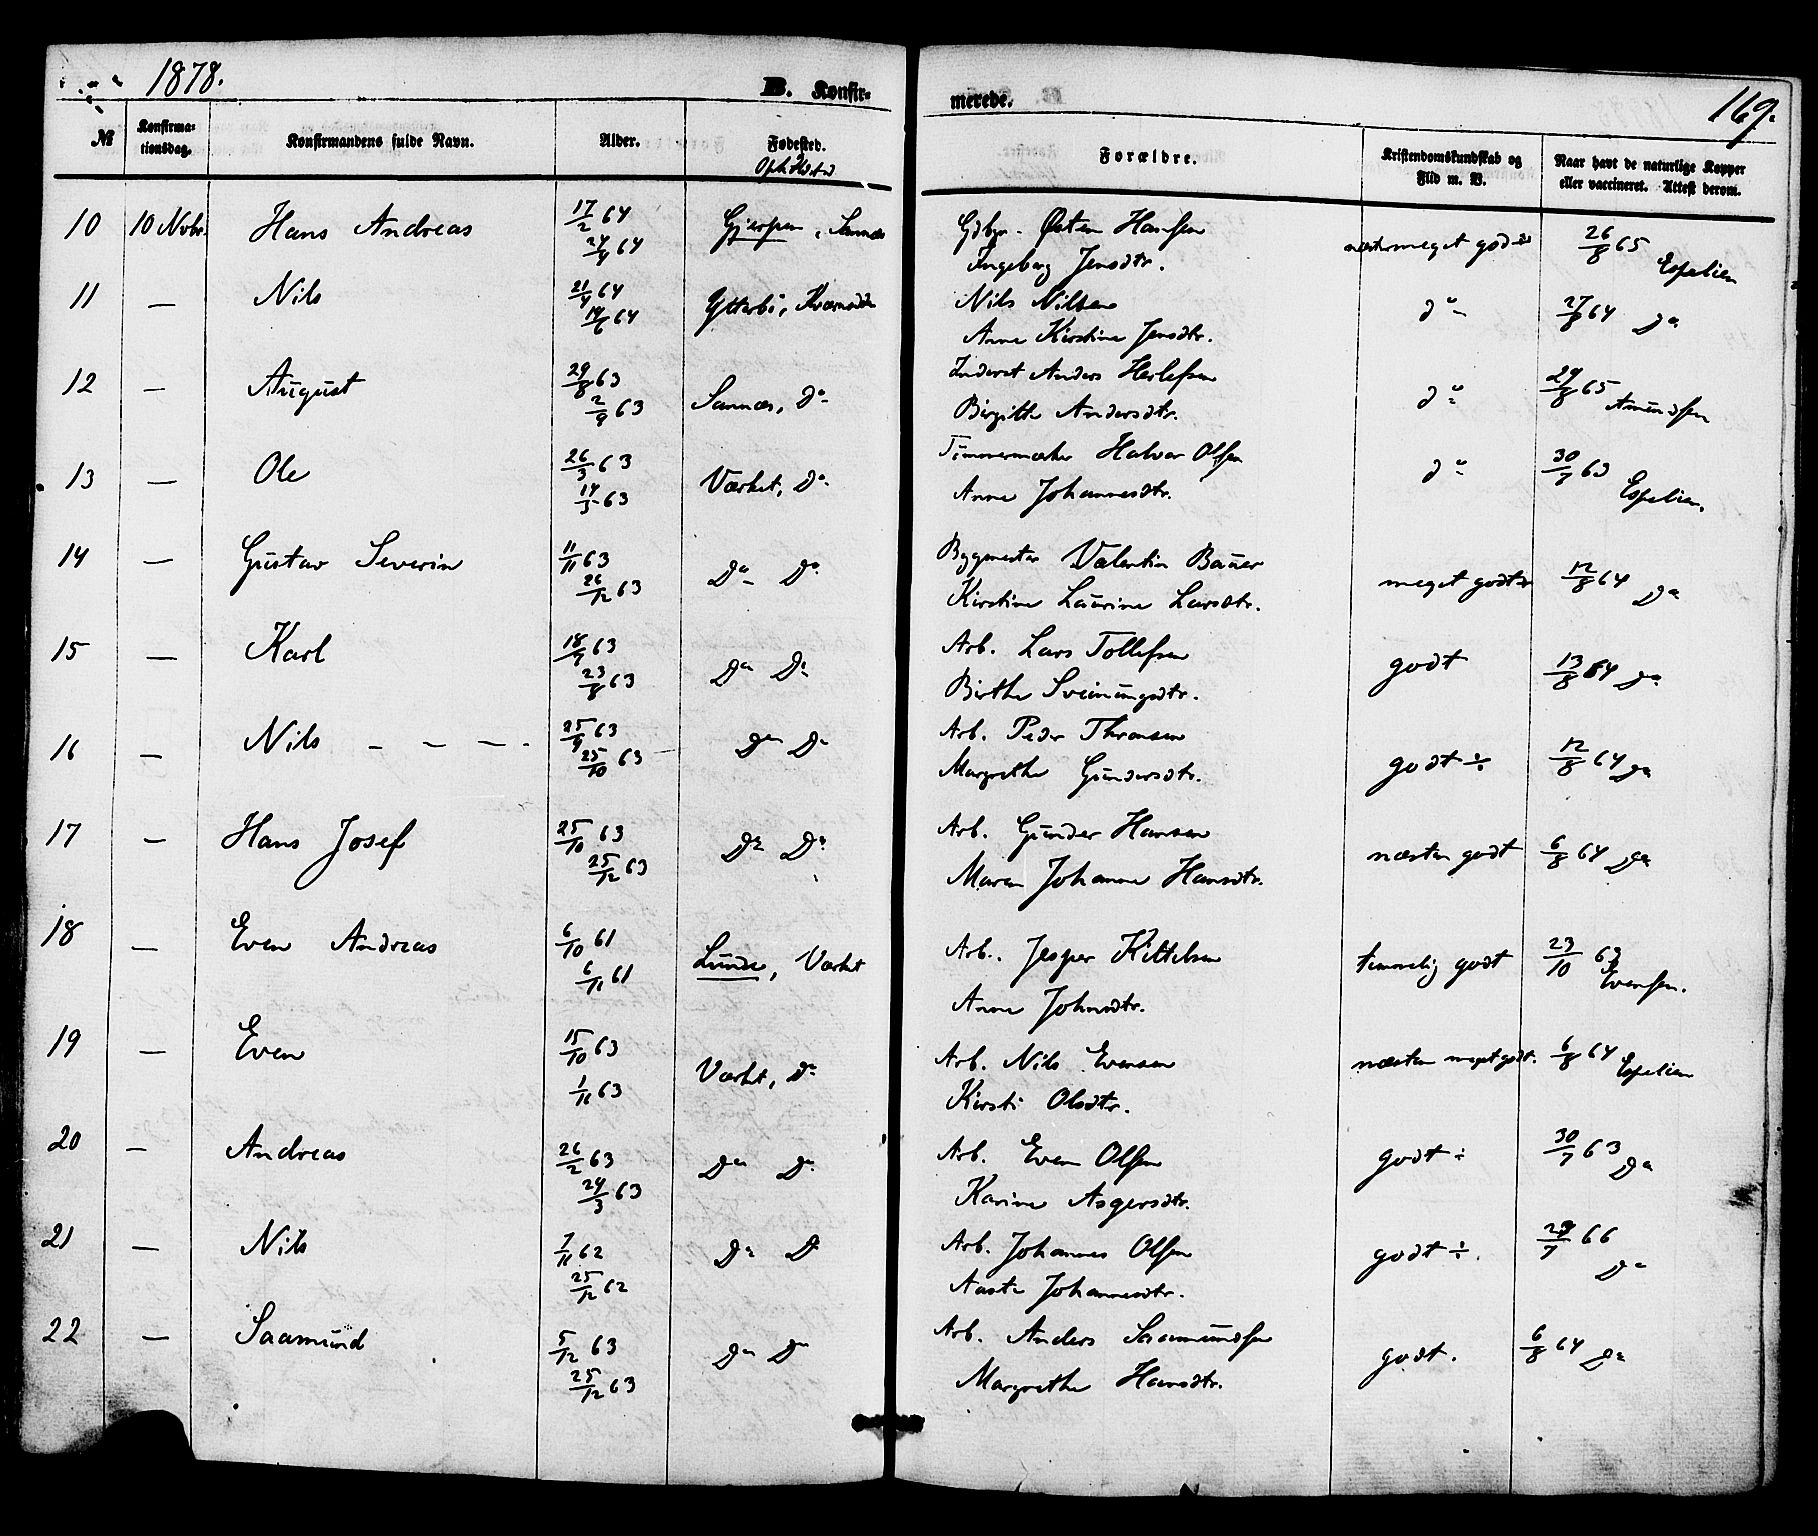 1878.
B. Konfir-
merede.
169.
№ Konfirma-tionsdag. Konfirmandens fulde Navn. Alder. Fødested. Opholdstd Forældre. Kristendomskundskab og Flid m. V. Naar havt de naturlige Kopper eller vaccineret. Attest derom.
10 10 Novbr. Hans Andreas 17/2 64 Gjerpen, Sannæs Gdbgr. Østen Hansen næsten meget godt 26/8 65 Espelien
24/4 64 Ingeborg Jensdtr.
11 — Nils 21/4 64 Ytterbö, Nils Nilsen do 27/8 64 Do
14/6 64 Anne Kirstine Jensdtr.
12 — August 29/8 63 Sannæs, Do Inderst Anders Herlefsen do 29/8 65 Amundsen
2/9 63 Birgitte Andersdtr.
13 — Ole 26/3 63 Værket, Do Tømmermerker Halvor Olsen do 30/7 63 Espelien.
Anne Johannesdtr.
14 — Gustav Severin 11/11 63 Do Do Bygmester Valentin Bauer meget godt 12/8 64 Do
26/12 63 Kirstine Laurine Larsdtr.
15 — Karl 18/7 63 Do Do Arb. Lars Tollefsen godt 13/8 64 Do
23/8 63 Birthe Sveinungsdtr.
16 — Nils — — — . 25/9 63 Do Do Arb. Peder Thronsen godt ÷ 12/8 64 Do
25/10 63 Margrethe Gundersdtr.
17 — Hans Josef 25/10 63 Do Do Arb. Gunder Hansen næsten godt 6/8 64 Do
25/12 63 Maren Johanne Hansdtr.
18 — Even Andreas 6/10 61 Lunde, Værket Arb. Jesper Kittelsen temmelig godt 23/10 63 Evensen.
6/11 61 Anne Johnsdtr.
19 — Even 15/10 63 Værket, Do Arb. Nils Evensen næsten meget godt. 6/8 64 Espelien
1/11 63 Kirsti Olsdtr.
20 — Andreas 26/2 63 Do Do Arb. Even Olsen godt ÷ 30/7 63 Do
24/3 63 Karine Asgersdtr.
21 — Nils 7/11 62 Do D Arb. Johannes Olsen godt ÷. 29/7 66 Do
25/12 62 Aaste Johannesdtr.
22 — Saamund 5/12 63 Do Do Arb. Anders Saamundsen godt. 6/8 64 Do
25/12 63 Margrethe Hansdtr.